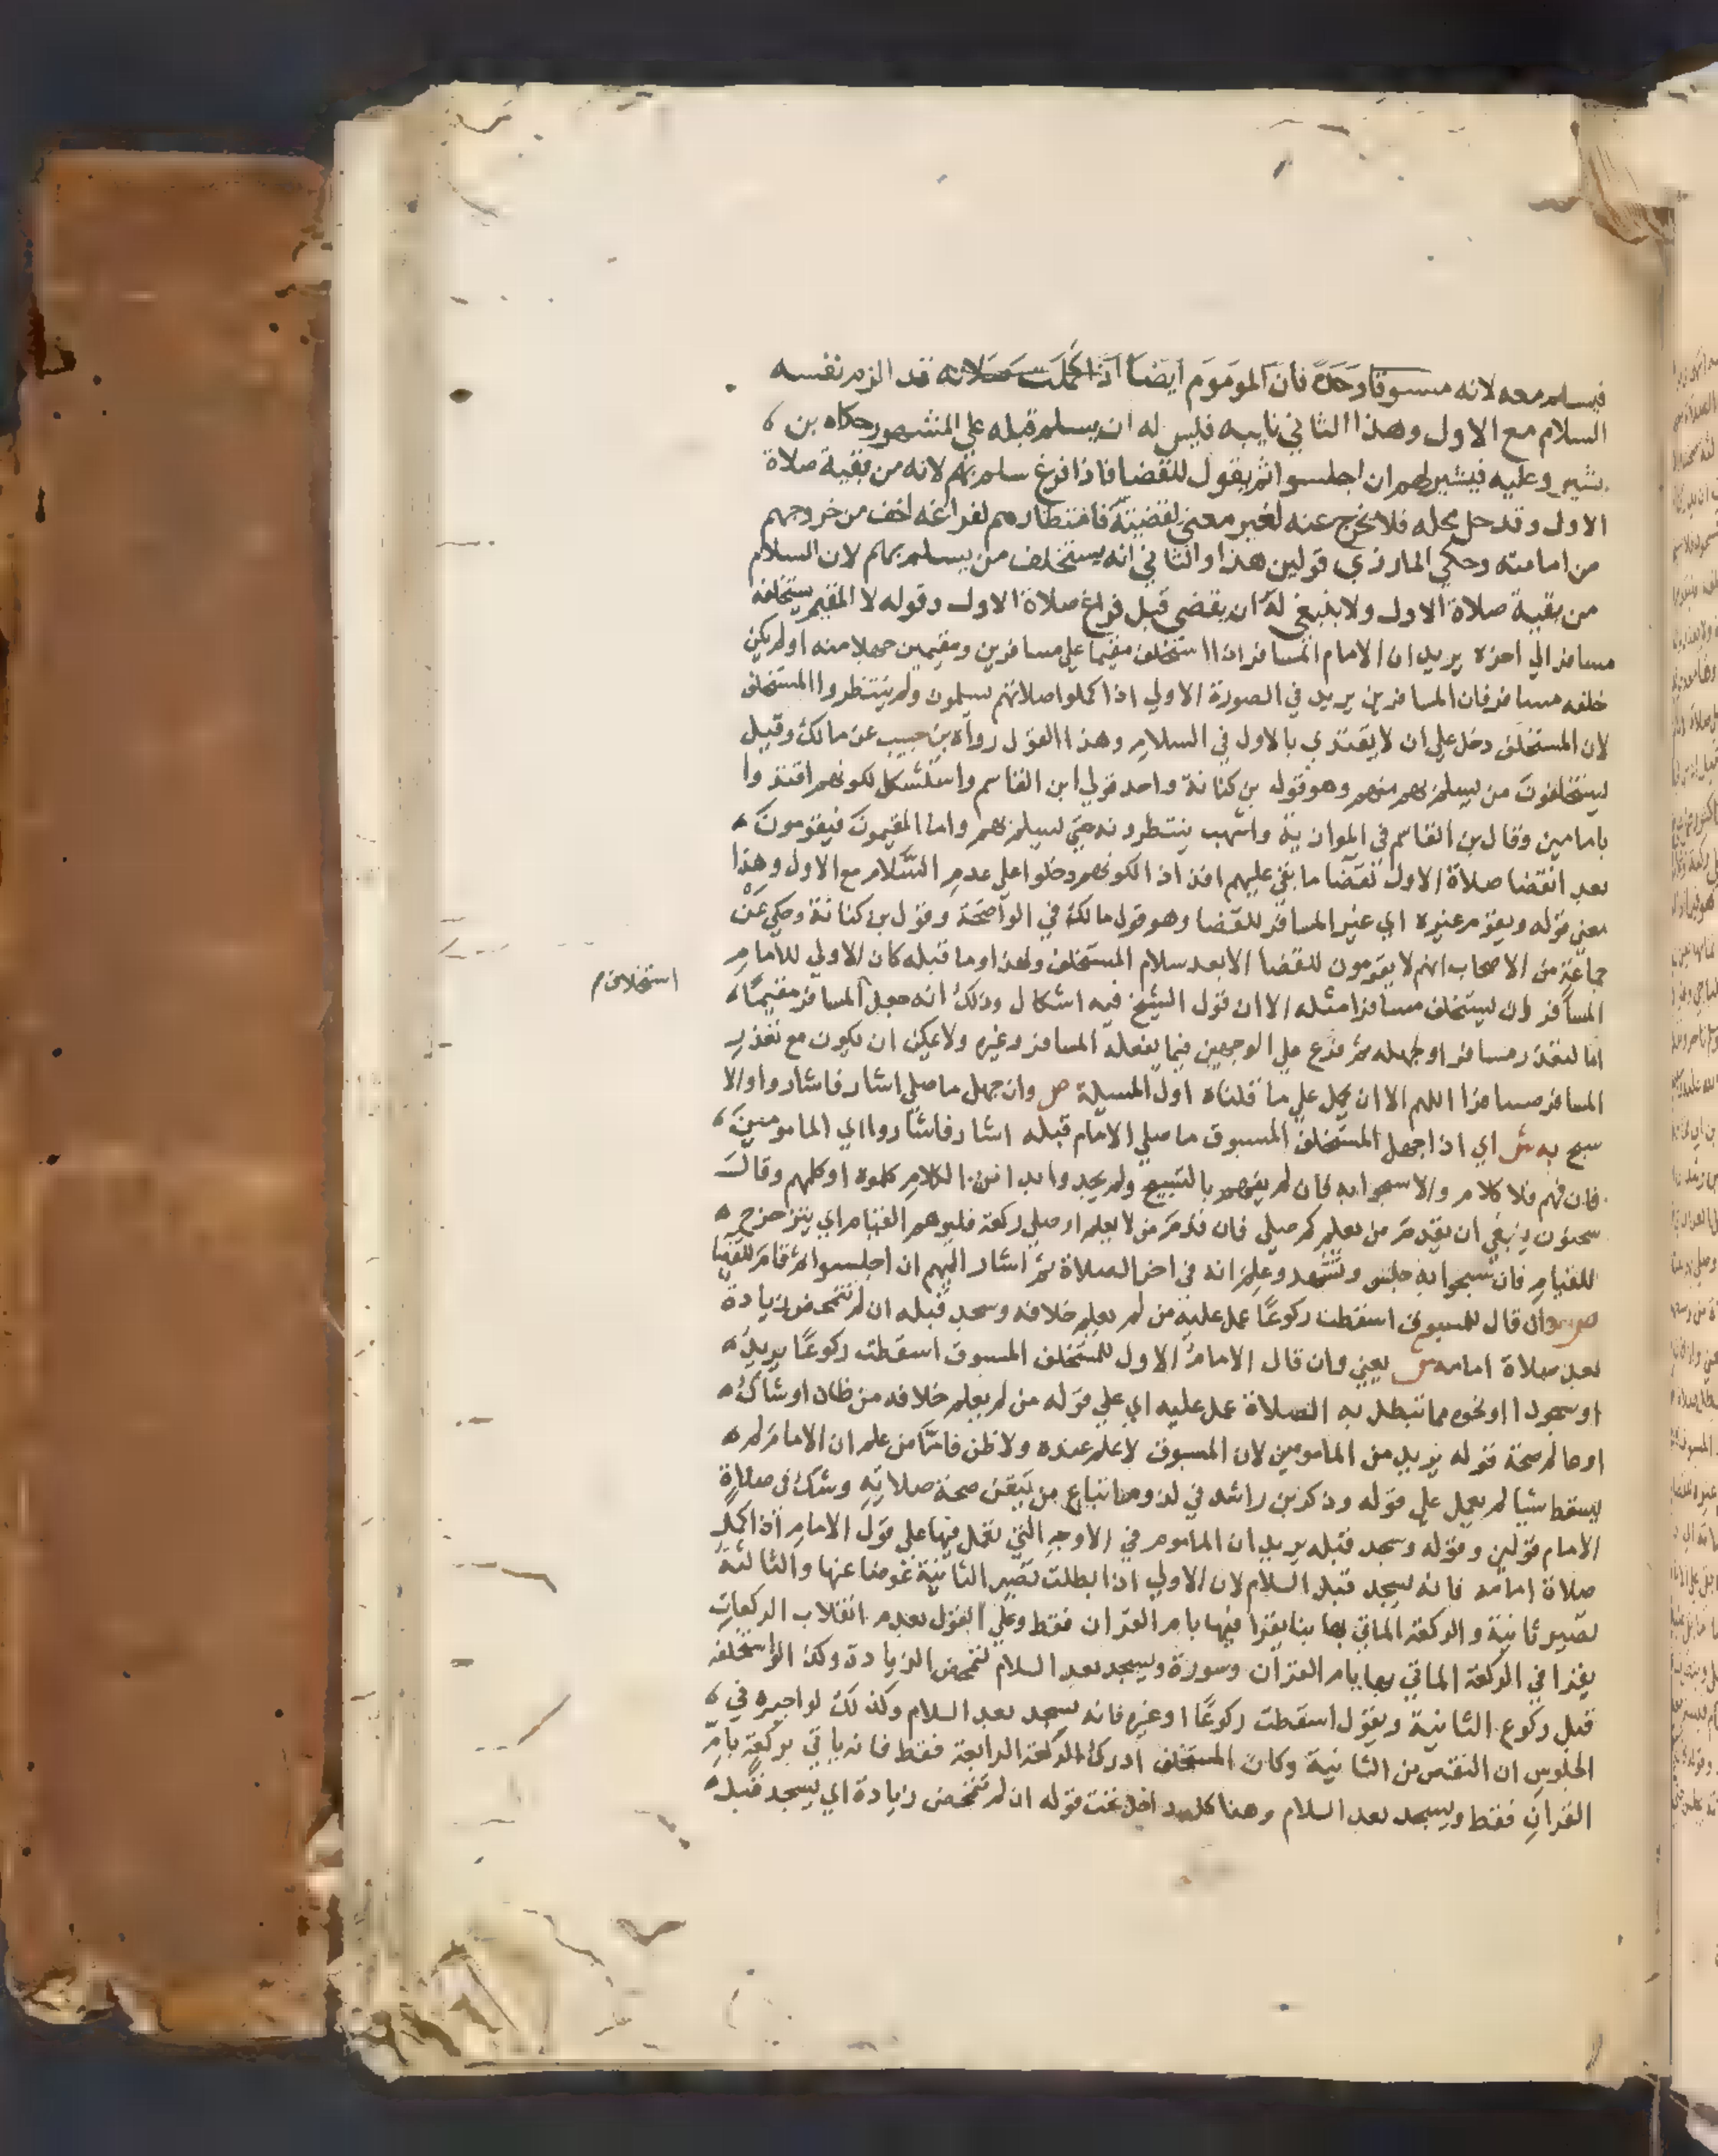 فيسلم معه لانه مسبوقا وحده فان الموموم ايضا اذا كملت صلاته فقد الزم نفسه
السلام مع الاول وهذا الثاني نايبه فليس له ان يسلم قبله على المشهور حكاه بن
بشير وعليه فيشير لهم ان اجلسوا ثم يقول للقضا فاذا فرغ سلم بهم لانه من بقية صلاة
الاول وقد حل محله فلا يخرج عنه لغير معنى يقتضيه فانتظارهم لفراغه اخف من خروجهم
من امامته وحكي المازري قولين هذا والثاني انه يستخلف من يسلم بهم لان السلام
من بقية صلاة الاول ولا ينبغي له ان يقضي قبل فراغ صلاة الاول وقوله لا المقيم يستخلفه
مسافر الي اخره يريد ان الامام المسافر اذا استخلف مقيما علي مسافرين ومقيمين جهلا منه او لم يكن
خلفه مسافر فان المسافرين يريد في الصورة الاولي اذا كملوا صلاتهم يسلمون ولم ينتظروا المستخلف
لان المستخلف دخل علي ان لا يقتدي بالاول في السلام وهذا القول رواه بن حبيب عن مالك وقيل
يستخلفون من يسلم بهم منهم وهو قول بن كنانة واحد قولي ابن القاسم واستشكل لكونهم اقتدوا
بامامين وقال بن القاسم في الموازية واشهب ينتظرونه حتي يسلم بهم واما المقيمون فيقومون
بعد انقضا صلاة الاول لقضا ما بقي عليهم افذاذا لكونهم دخلوا علي عدم السلام مع الاول وهذا
معنى قوله ويقوم غيره اي غير المسافر للقضا وهو قول مالك في الواضحة وقول بن كنانة وحكي عن
جماعة من الاصحاب انهم لا يقومون للقضا الا بعد سلام المستخلف ولهذا وما قبله كان الاولي للامام
استخلاف
المسافر ان يستخلف مسافرا مثله الا ان قول الشيخ فيه اشكال وذلك انه جعل المسافر مقيما
اما لتعذر مسافر او لجهله ثم فرع علي الوجهين فيما يفعله المسافر وغيره ولا يمكن ان يكون مع تعذر
المسافر مسافرا اللهم الا ان يحمل علي ما قلناه اول المسيلة ص وان جهل ما صلي اشار فاشاروا والا
سبح به ش اي اذا جهل المستخلف المسبوق ما صلي الامام قبله اشار فاشاروا اي المامومين
فان فهم فلا كلام والا سبحوا به فان لم يفهم بالتسبيح ولم يجدوا بدا من الكلام كلموه او كلهم وقال
سحنون ينبغي ان يقدم من يعلم كم صلي فان قدم من لا يعلم او صلي ركعة فليوهم القيام اي يتزحزح
للقيام فان سبحوا به جلس وتشهد وعلم انه في اخر الصلاة ثم اشار اليهم ان اجلسوا ثم قام للقضا
ص وان قال للمسبوق اسقطت ركوعا عمل عليه من لم يعلم خلافه وسجد قبله ان لم تتمحض زيادة
بعد صلاة امامه ش يعني وان قال الامام الاول للمستخلف المسبوق اسقطت ركوعا يريد
او سجودا او نحوه مما تبطل به الصلاة عمل عليه اي علي قوله من لم يعلم خلافه من ظان او شاك
او عالم صحة قوله يريد من المامومين لان المسبوق لا علم عنده ولا ظن فاما من علم ان الامام لم
يسقط شيا لم يعمل علي قوله وذكر بن راشد في لزوم اتباع من تيقن صحة صلاته وشك في صلاة
الامام قولين وقوله وسجد قبله يريد ان الماموم في الاوجه التي تعمل فيها على قول الامام اذا كمل
صلاة امامه فانه يسجد قبل السلام لان الاولي اذا بطلت تصير الثانية عوضا عنها والثالثة
تصير ثانية والركعة الماتي بها بنا يقرا فيها بام القران فقط وعلي القول بعدم انقلاب الركعات
يقرا في الركعة الماتي بها بام القران وسورة ويسجد بعد السلام لتمحض الزيادة وكذا لو استخلفه
قبل ركوع الثانية ويقول اسقطت ركوعا او غيره فانه يسجد بعد السلام وكذلك لو اخبره في
الجلوس ان النقص من الثانية وكان المستخلف ادرك الركعة الرابعة فقط فانه ياتي بركعة بام
القران فقط ويسجد بعد السلام وهذا كله داخل تحت قوله ان لم تتمحض زيادة اي يسجد قبله